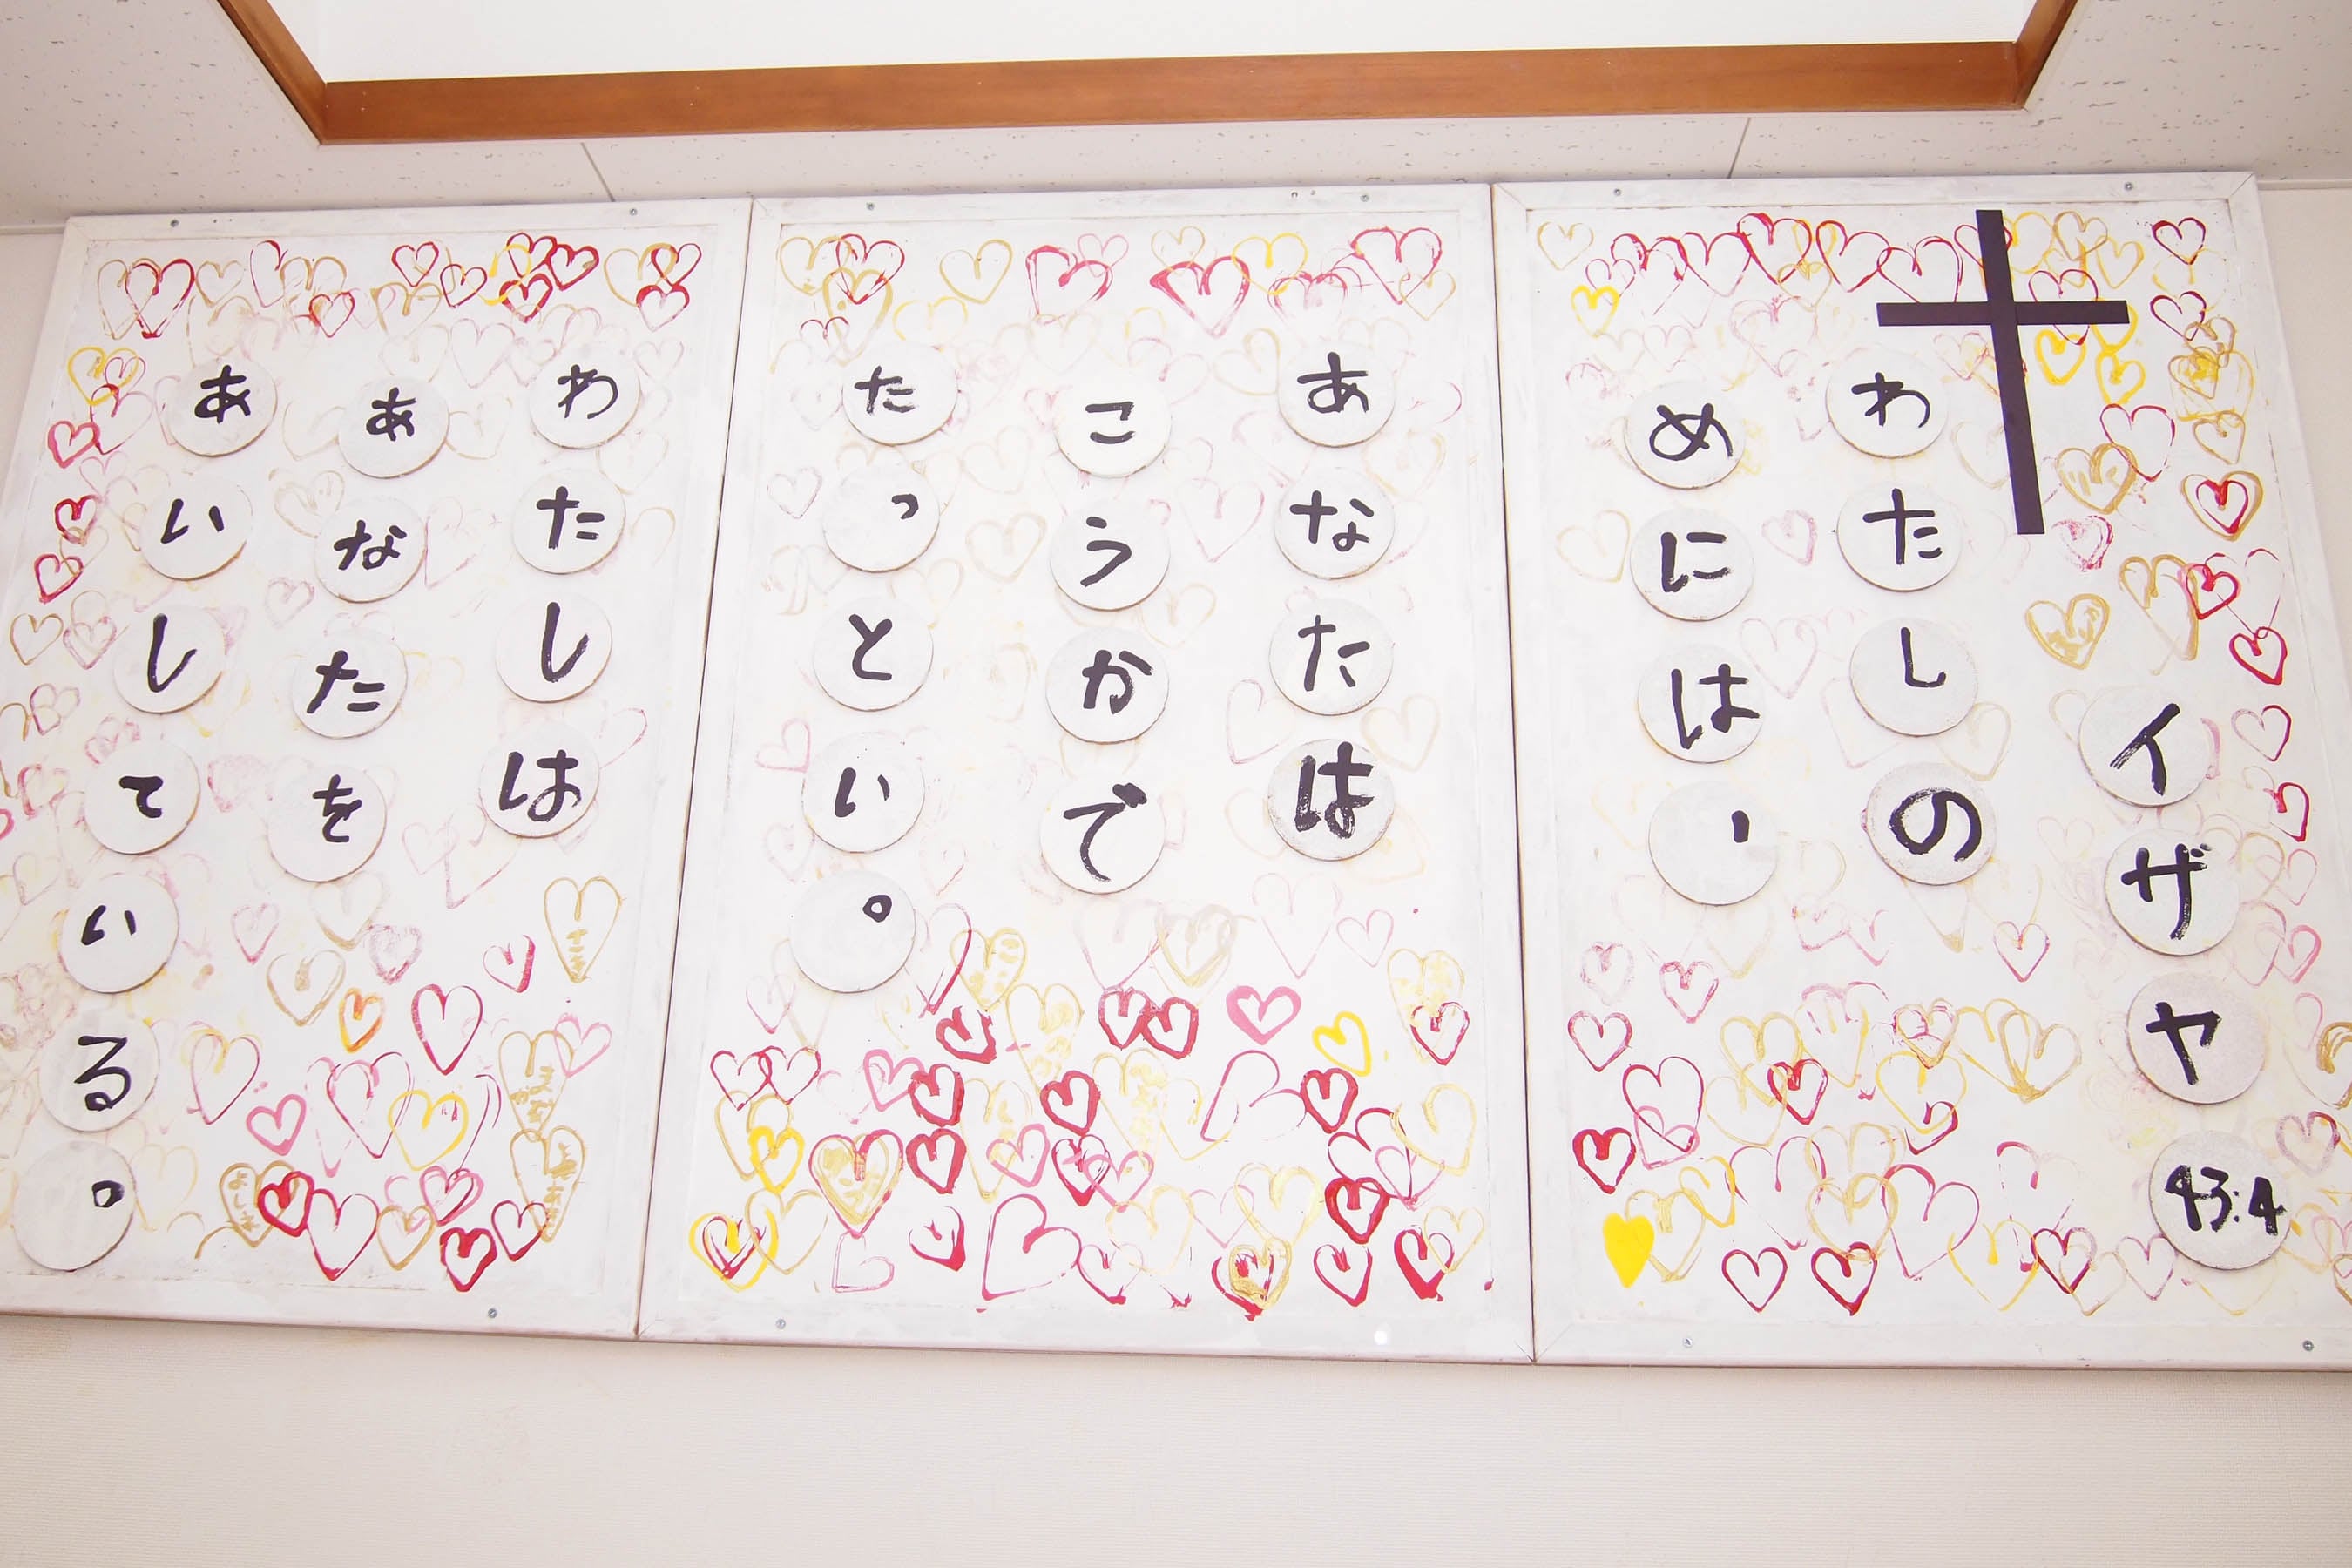 イザヤ43:4
わたしの
めには、
あなたは
こうかで
たっとい。
わたしは
あなたを
あいしている。